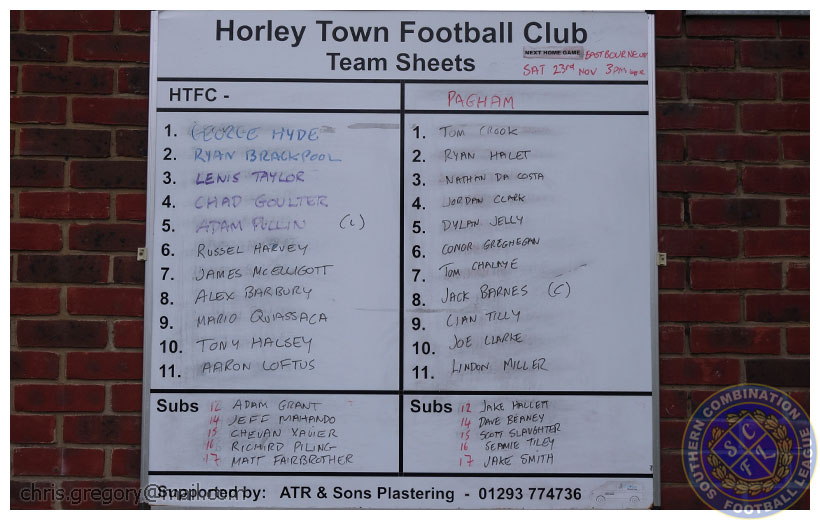 Horley Town Football Club
Team Sheets
NEXT HOME GAME EASTBOURNE UTD
SAT 23rd NOV 3PM
HTFC -
PAGHAM
1. GEORGE HYDE
2. RYAN BRACKPOOL
3. LENIS TAYLOR
4. CHAD GOULTER
5. ADAM PULLIN (C)
6. RUSSEL HARVEY
7. JAMES McELLIGOTT
8. ALEX BARBURY
9. MARIO QUIASSACA
10. TONY HALSEY
11. AARON LOFTUS
1. TOM CROOK
2. RYAN HALET
3. NATHAN DA COSTA
4. JORDAN CLARK
5. DYLAN JELLY
6. CONOR GREGHEGAN
7. TOM CHALAYE
8. JACK BARNES (C)
9. CIAN TILLY
10. JOE CLARKE
11. LINDON MILLER
Subs 12 ADAM GRANT
14 JEFF MAHANDO
15 CHEVAN XAVIER
16 RICHIRD PILING
17 MATT FAIRBROTHER
Subs 12 JAKE HALLETT
14 DAVE BEANEY
15 SCOTT SLAUGHTER
16 SEAMIE TILEY
17 JAKE SMITH
Supported by: ATR & Sons Plastering - 01293 774736
chris.gregory@
SOUTHERN COMBINATION FOOTBALL LEAGUE
SCFL